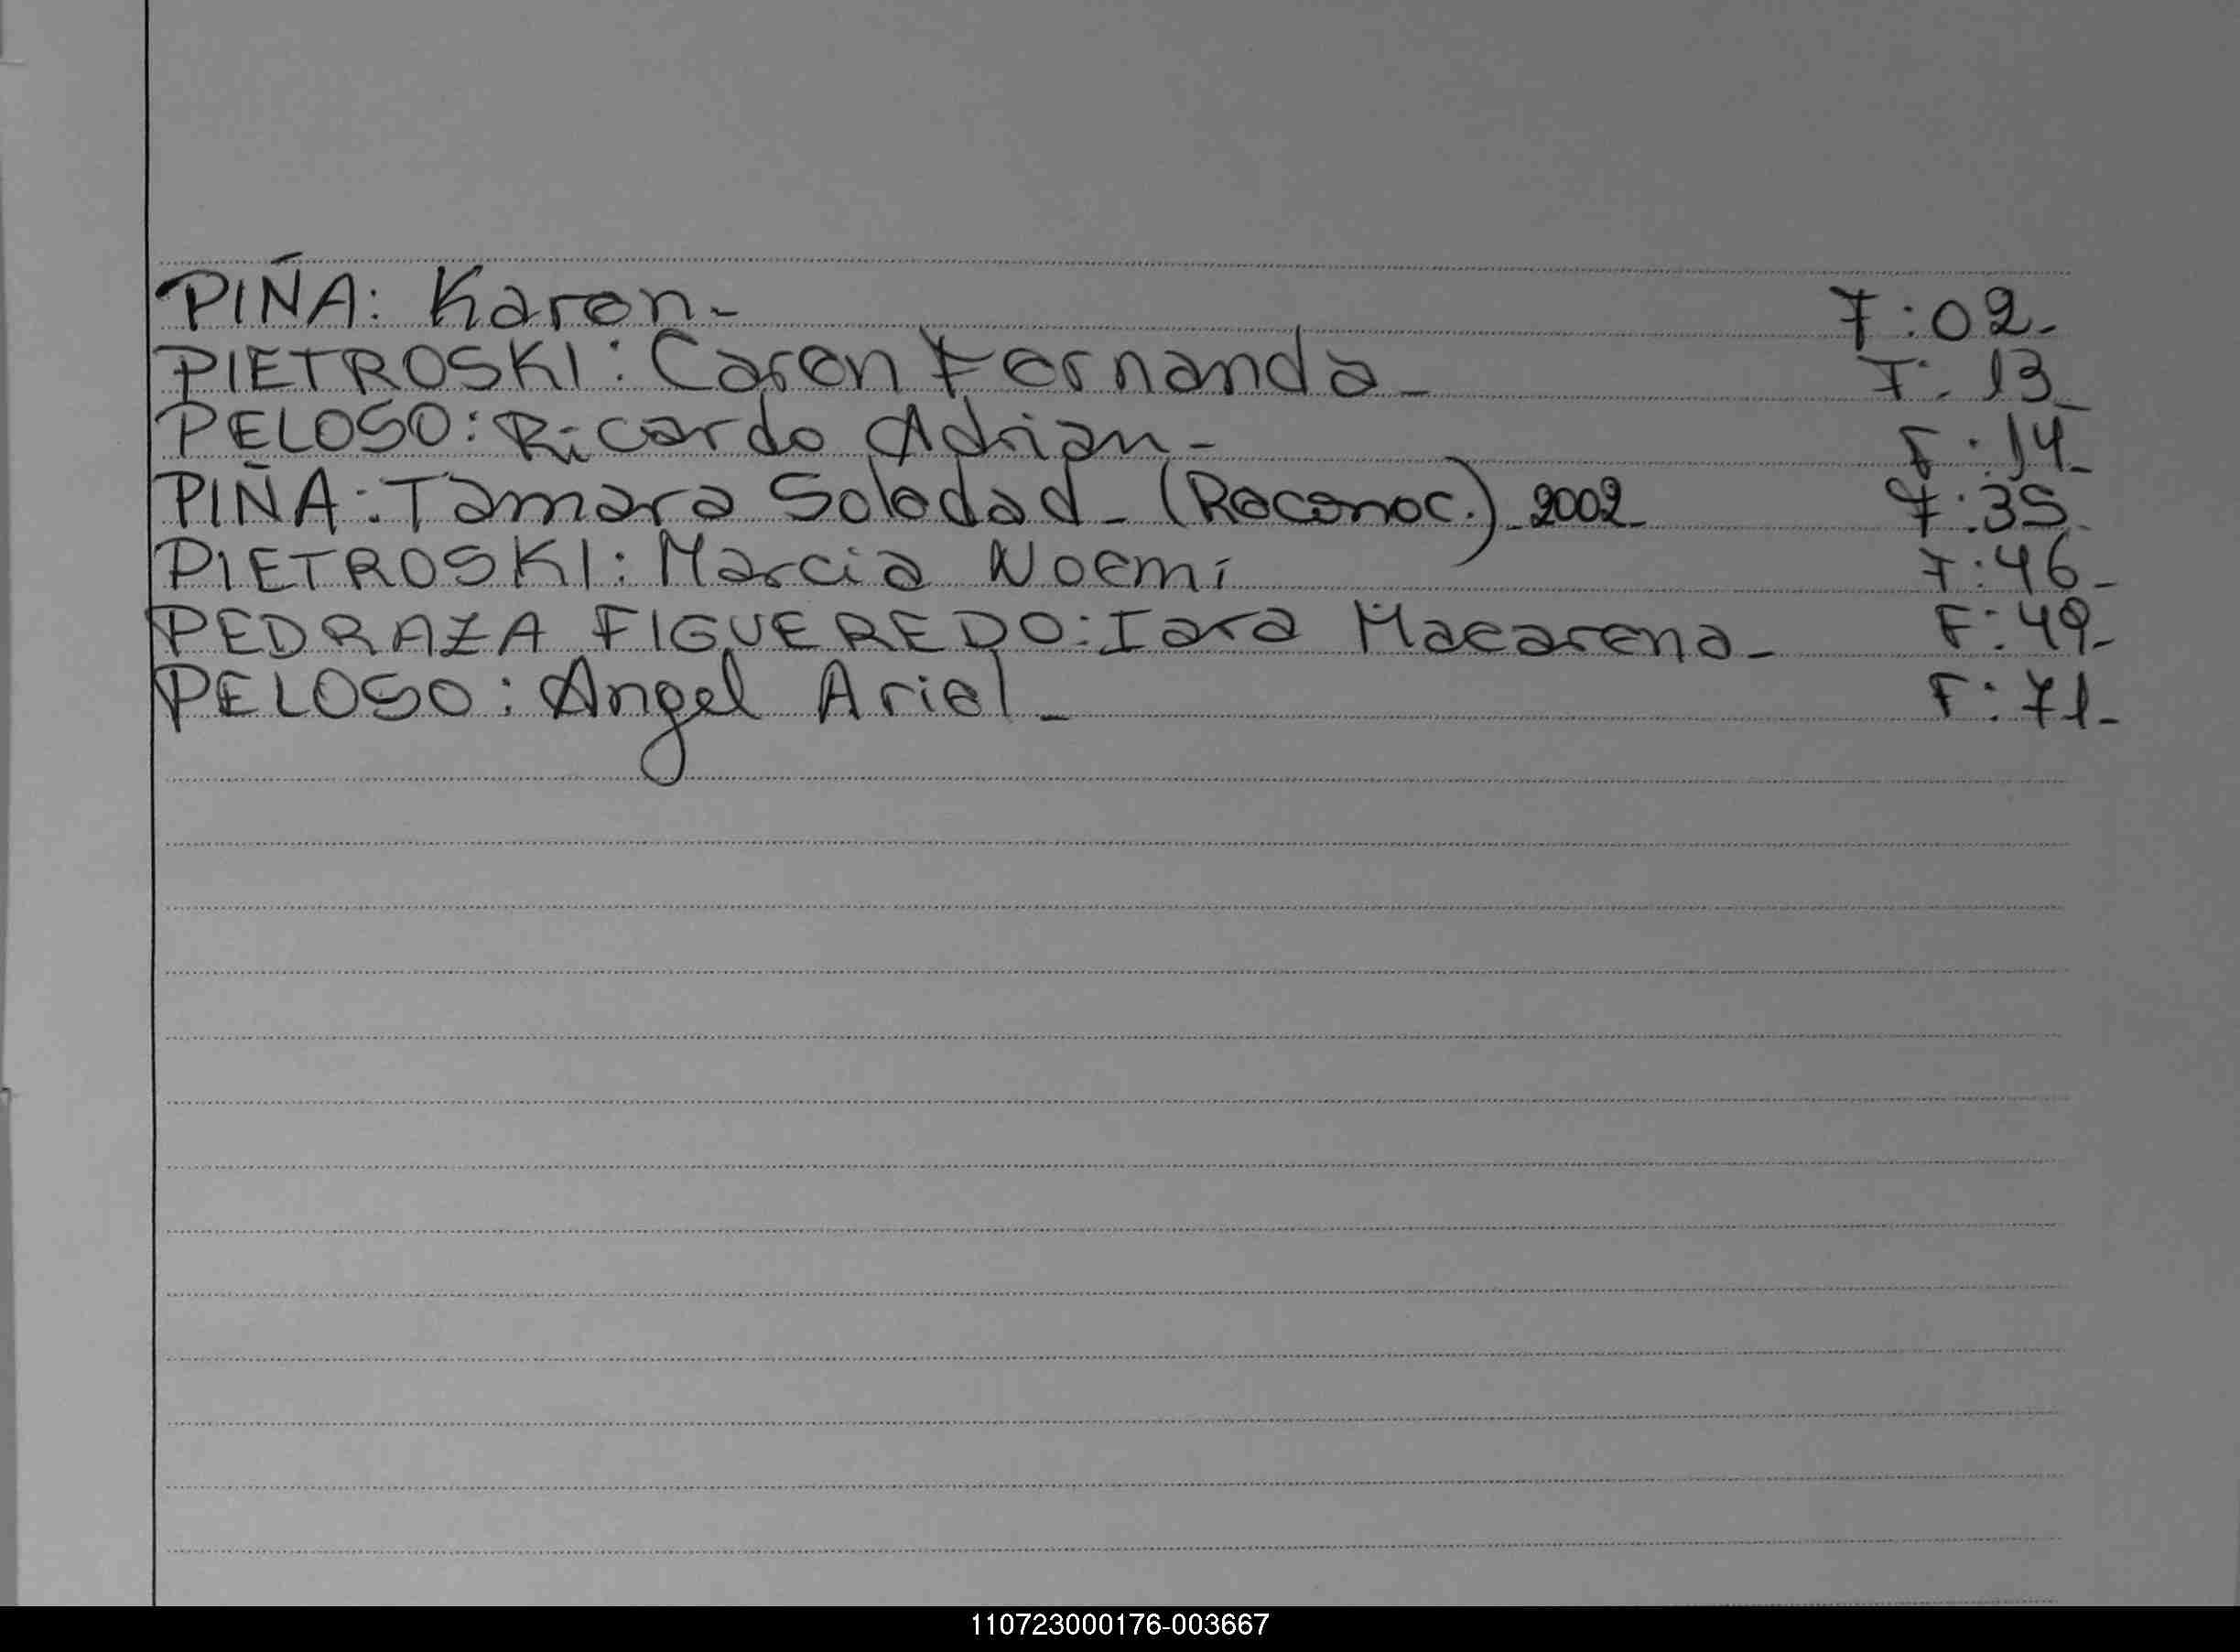 PIÑA: Karen- F:02-
PIETROSKI: Caren Fernanda- F:13-
PELOSO: Ricardo Adrian- F:14-
PIÑA: Tamara Soledad- (Reconoc.)-2002- F:35-
PIETROSKI: Marcia Noemi F:46-
PEDRAZA FIGUEREDO: Iara Macarena- F:49-
PELOSO: Angel Ariel- F:71-
110723000176-003667